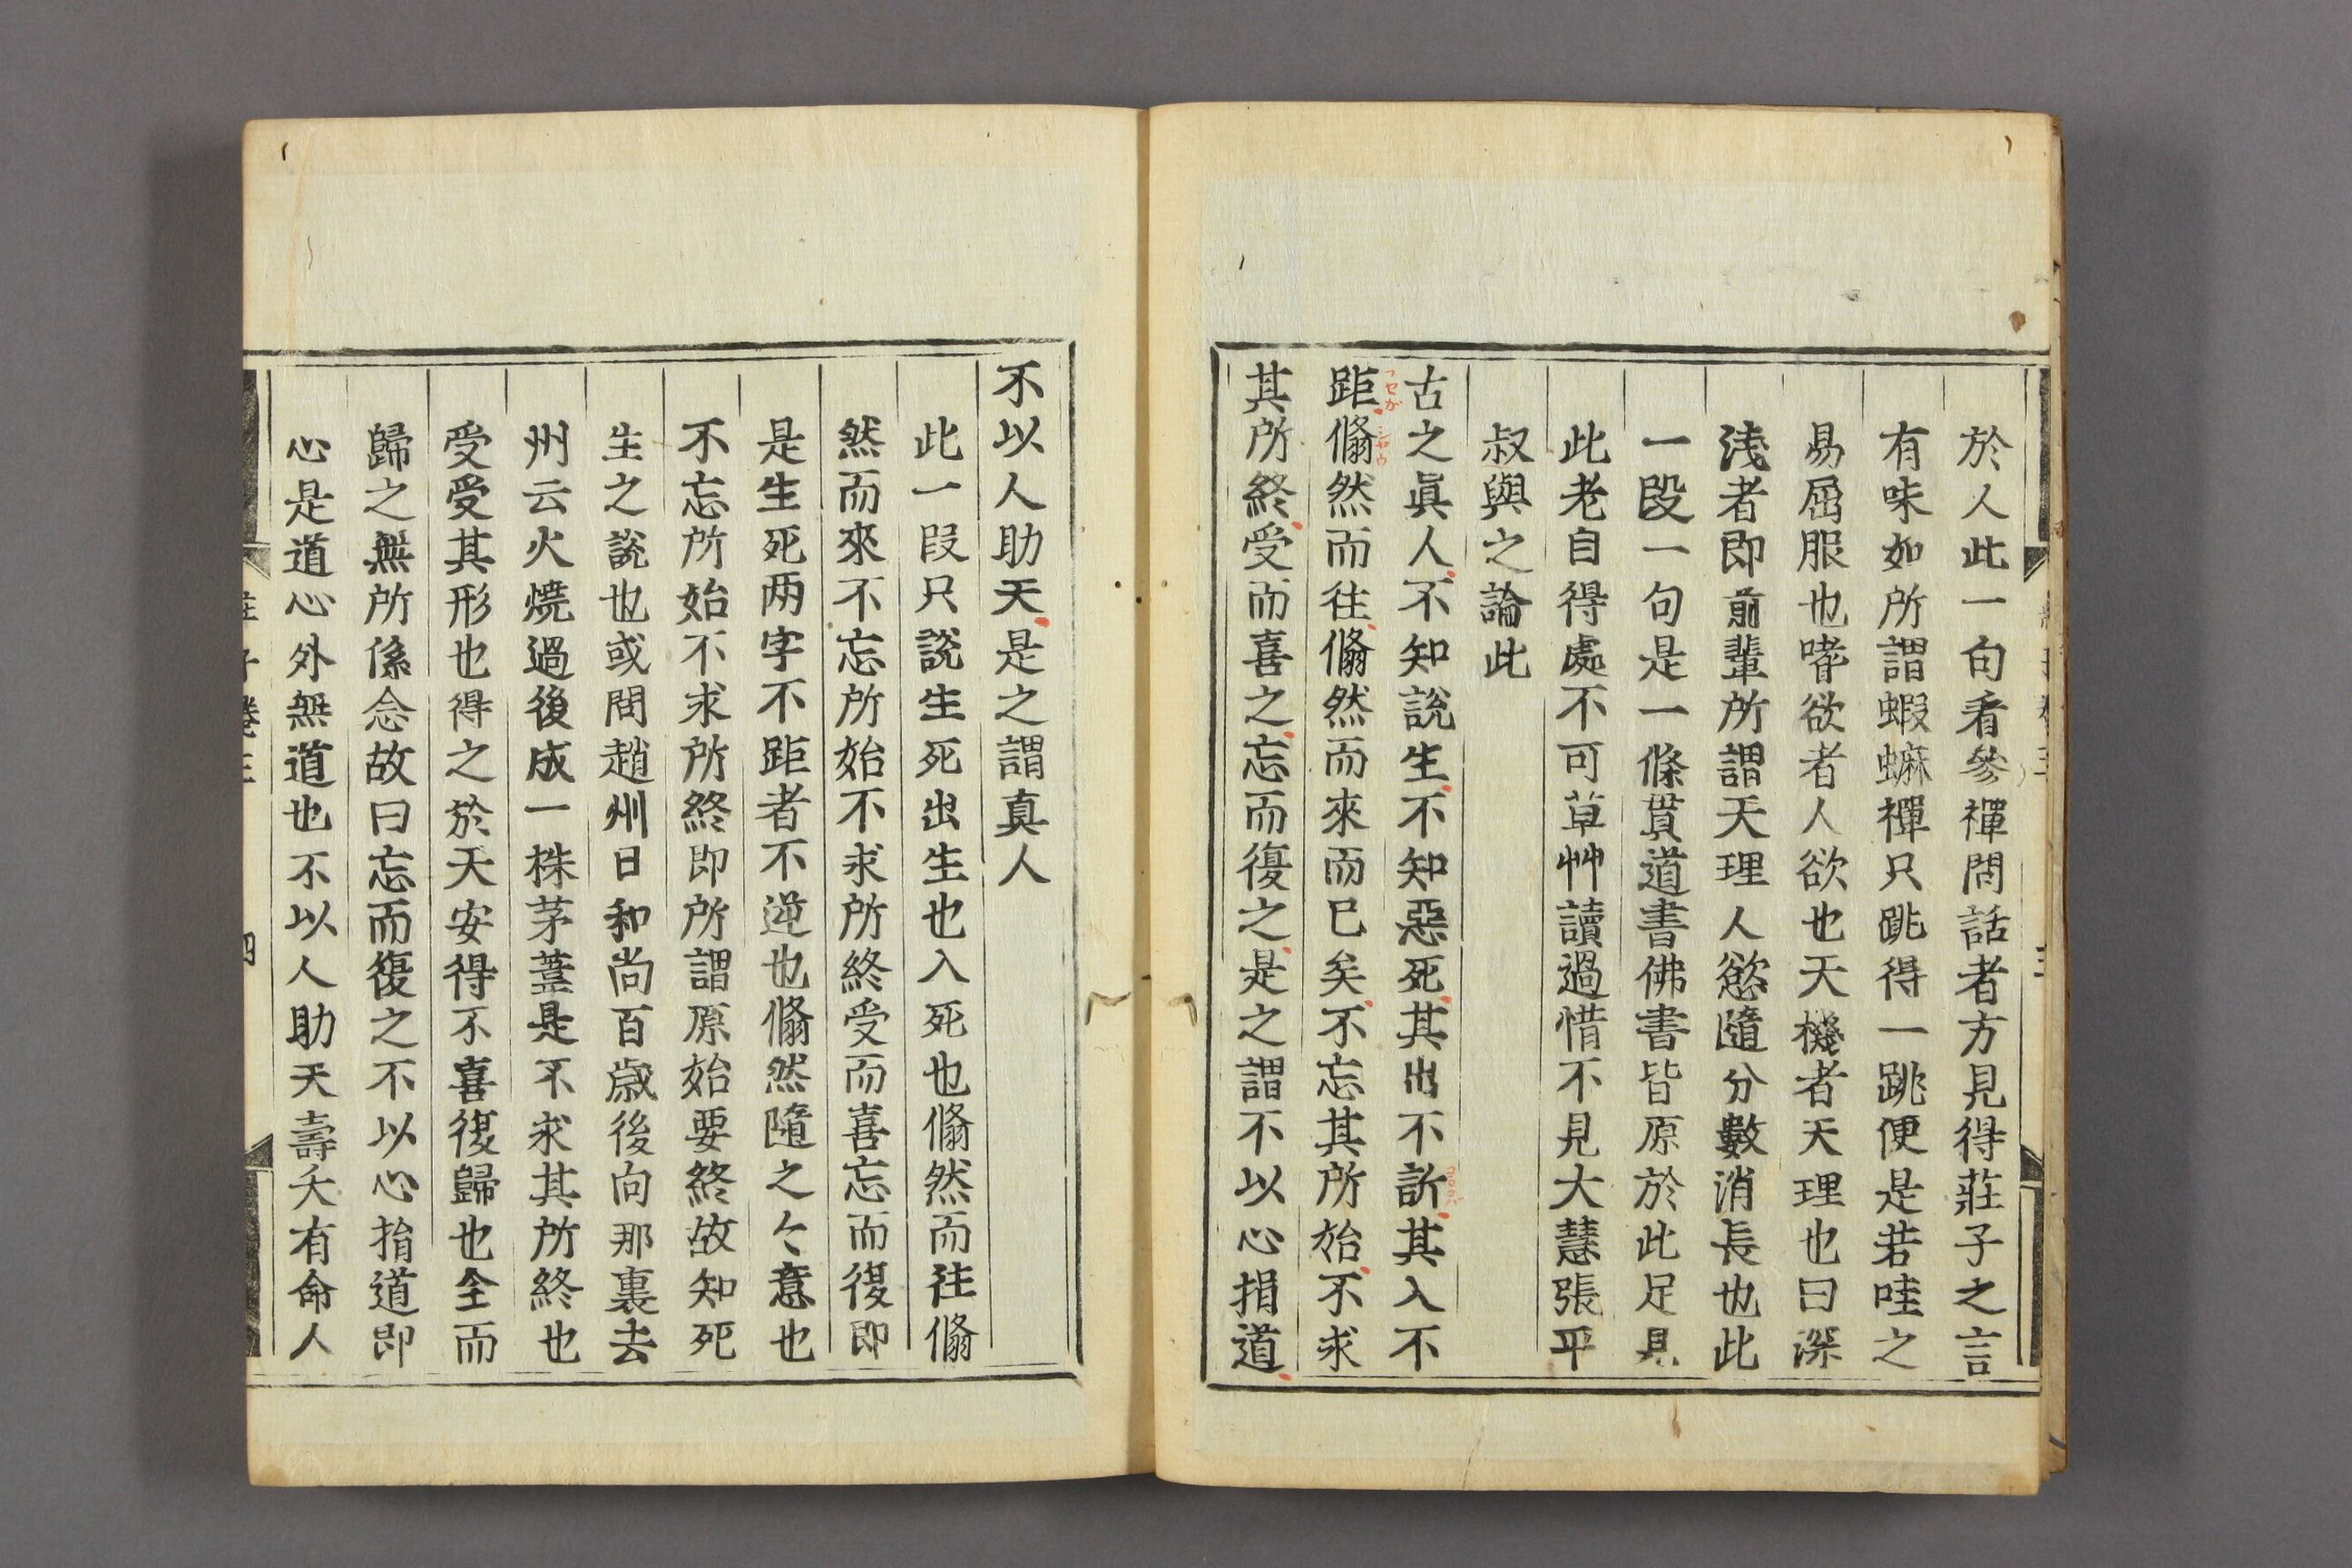 於人此一句看參禪問話者方見得莊子之言
有味如所謂蝦蟆禪只跳得一跳便是若哇之
易屈服也嗜欲者人欲也天機者天理也曰深
浅者即前輩所謂天理人慾隨分數消長也此
一段一句是一條貫道書佛書皆原於此足見
此老自得處不可草艸讀過惜不見大慧張平
叔與之論此
古之眞人不知說生不知惡死其出不訢其入不
距翛然而往翛然而來而巳矣不忘其所始不求
其所終受而喜之忘而復之是之謂不以心捐道
不以人助天是之謂真人
此一段只說生死出生也入死也翛然而往翛
然而來不忘所始不求所終受而喜忘而復即
是生死两字不距者不逆也翛然隨之々意也
不忘所始不求所終即所謂原始要終故知死
生之說也或問趙州曰和尚百歲後向那裏去
州云火燒過後成一株茅葢是不求其所終也
受受其形也得之於天安得不喜復歸也全而
歸之無所係念故曰忘而復之不以心捐道即
心是道心外無道也不以人助天壽夭有命人
莊子卷三
四